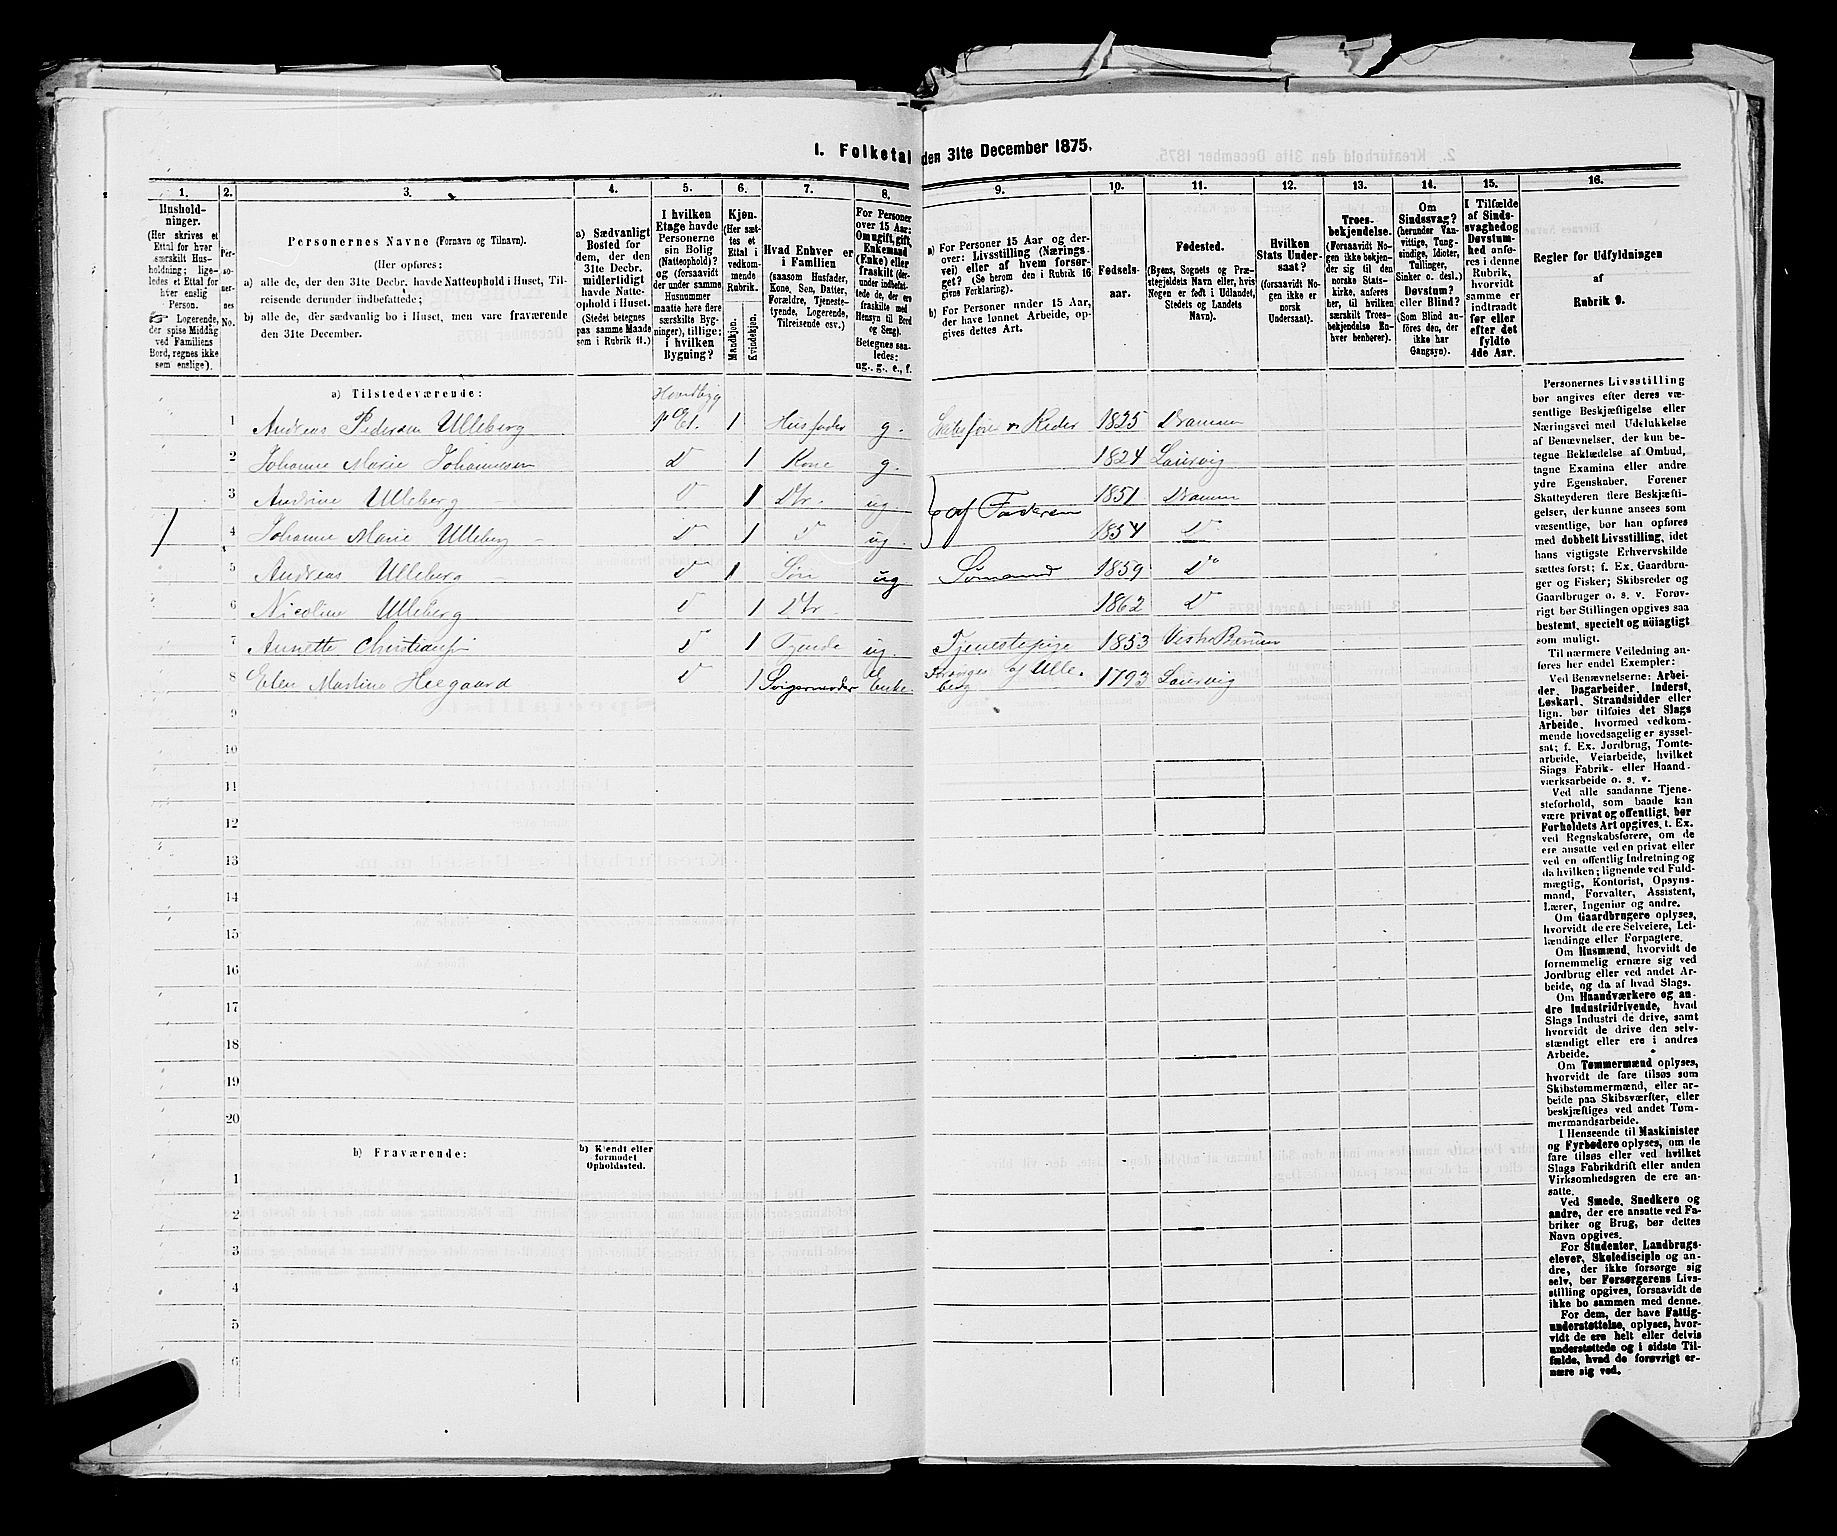 1. Folketal den 31te December 1875.
1. 2. 3. 4. 5. 6. 7. 8. 9. 10. 11. 12. 13. 14. 15. 16.
Hushold-
ninger.
(Her skrives et
Ettal for hver
særskilt Hus-
holdning; lige-
ledes et Ettal for
hver enslig
Person.
Logerende,
der spise Middag
ved Familiens
Bord, regnes ikke
som enslige).
Per-
so-
ner-
nes
No.
Personernes Navne (Fornavn og Tilnavn).
(Her opføres:
a) alle de, der den 31te Decbr. havde Natteophold i Huset, Til-
reisende derunder indbefattede;
b) alle de, der sædvanlig bo i Huset, men vare fraværende
den 31te December.
a) Sædvanligt
Bosted for
dem, der den
31te Decbr.
midlertidigt
havde Natte-
ophold i Huset.
(Stedet betegnes
paa samme Maade
som i Rubrik 11.)
I hvilken
Etage havde
Personerne
sin Bolig
(Natteophold)?
og (forsaavidt
der under samme
Husnummer
maatte høre flere
særskilte Byg-
ninger), tillige:
i hvilken
Bygning?
Kjøn.
(Her sæt-
tes et
Ettal i
vedkom-
mende
Rubrik.
Mandkjøn. Kvindekjøn.
Hvad Enhver er
i Familien
(saasom Husfader,
Kone, Søn, Datter,
Forældre, Tjeneste-
tyende, Logerende,
Tilreisende osv.)
For Personer
over 15 Aar:
Om ugift, gift,
Enkemand
(Enke) eller
fraskilt (der-
under indbefat-
tede de, der ere
fraskilte med
Hensyn til Bord
og Seng).
Betegnes saa-
ledes:
ug., g., e., f.
a) For Personer 15 Aar og der-
over: Livsstilling (Nærings-
vei) eller af hvem forsør-
get? (Se herom den i Rubrik 16
givne Forklaring).
b) For Personer under 15 Aar,
der have lønnet Arbeide, op-
gives dettes Art.
Fødsels-
aar.
Fødested.
(Byens, Sognets og Præ-
stegjeldets Navn eller, hvis
Nogen er født i Udlandet,
Stedets og Landets
Navn).
Hvilken
Stats Under-
saat?
(forsaavidt No-
gen ikke er
norsk
Undersaat).
Troes-
bekjendelse.
(Forsaavidt No-
gen ikke bekjen-
der sig til den
norske Stats-
kirke, anføres
her, til hvilken
særskilt Troes-
bekjendelse En-
hver henhører).
Om
Sindssvag?
(herunder Van-
vittige, Tung-
sindige, Idioter,
Tullinger,
Sinker o. desl.)
Døvstum?
eller Blind?
(Som Blind an-
føres den, der
ikke har
Gangsyn).
I Tilfælde
af Sinds-
svaghed og
Døvstum-
hed anfø-
res i denne
Rubrik,
hvorvidt
samme er
indtraadt
før eller
efter det
fyldte
4de Aar.
Regler for Udfyldningen
af
Rubrik 9.
a) Tilstedeværende:
1 Andreas Pedersen Ulleberg 1 Husfader g. Reder 1825 Drammen
2 Johanne Marie Johannesen D 1 Kone g. 1824 Laurvig
3 Andrine Ulleberg D 1 Dtr. ug af Faderen 1851 Drammen
4 Johanne Marie Ulleberg D 1 D ug. 1854 D
5 Andreas Ulleberg D 1 Søn ug Sømand 1859 D
6 Nicoline Ulleberg D 1 Dtr. 1862 D
7 Annette D 1 Tyende ug. Tjenestepige 1853 Vestre Berum
8 Elen Martine Heegaard D 1 Svigermoder Enke Forsørges af Ulle-
berg 1793 Laurvig
9
10
11
12
13
14
15
16
17
18
19
20
b) Fraværende:
b) Kjendt eller
formodet
Opholdssted.
1
2
3
4
5
6
Personernes Livsstilling
bør angives efter deres væ-
sentlige Beskjæftigelse eller
Næringsvei med Udelukkelse
af Benævnelser, der kun be-
tegne Beklædelse af Ombud,
tagne Examina eller andre
ydre Egenskaber. Forener
Skatteyderen flere Beskjæfti-
gelser, der kunne ansees som
væsentlige, bør han opføres
med dobbelt Livsstilling, idet
hans vigtigste Erhvervskilde
sættes først; f. Ex. Gaardbru-
ger og Fisker; Skibsreder og
Gaardbruger o. s. v. Forøv-
rigt bør Stillingen opgives saa
bestemt, specielt og nøiagtigt
som muligt.
Til nærmere Veiledning an-
føres her endel Exempler:
Ved Benævnelserne: Arbei-
der, Dagarbeider, Inderst,
Løskarl, Strandsidder eller
lign. bør tilføies det Slags
Arbeide, hvormed vedkom-
mende hovedsagelig er syssel-
sat; f. Ex. Jordbrug, Tomte-
arbeide, Veiarbeide, hvilket
Slags Fabrik- eller Haand-
værksarbeide o. s. v.
Ved alle saadanne Tjene-
steforhold, som baade kan
være privat og offentligt, bør
Forholdets Art opgives, t. Ex.
ved Regnskabsførere, om de
ere ansatte ved en privat eller
ved en offentlig Indretning og
da hvilken; lignende ved Fuld-
mægtig, Kontorist, Opsyns-
mand, Forvalter, Assistent,
Lærer, Ingeniør og andre.
Om Gaardbrugere oplyses,
hvorvidt de ere Selveiere, Lei-
lændinge eller Forpagtere.
Om Husmænd, hvorvidt de
fornemmelig ernære sig ved
Jordbrug eller ved andet Ar-
beide, og da af hvad Slags.
Om Haandværkere og an-
dre Industridrivende, hvad
Slags Industri de drive, samt
hvorvidt de drive den selv-
stændigt eller ere i andres
Arbeide.
Om Tømmermænd oplyses,
hvorvidt de fare tilsøs som
Skibstømmermænd, eller ar-
beide paa Skibsværfter, eller
beskjæftiges ved andet Tøm-
mermandsarbeide.
I Henseende til Maskinister
og Fyrbødere oplyses, om de
fare tilsøs eller ved hvilket
Slags Fabrikdrift eller anden
Virksomhedsgren de ere an-
satte.
Ved Smede, Snedkere og
andre, der ere ansatte ved Fa-
briker og Brug, bør dettes
Navn opgives.
For Studenter, Landbrugs-
elever, Skoledisciple og an-
dre, der ikke forsørge sig
selv, bør Forsørgerens Livs-
stilling opgives, forsaavidt de
ikke bo sammen med denne.
For dem, der have Fattig-
understøttelse, oplyses, hvor-
vidt de ere helt eller delvis
understøttede og i sidste Til-
fælde, hvad de forøvrigt er-
nære sig ved.